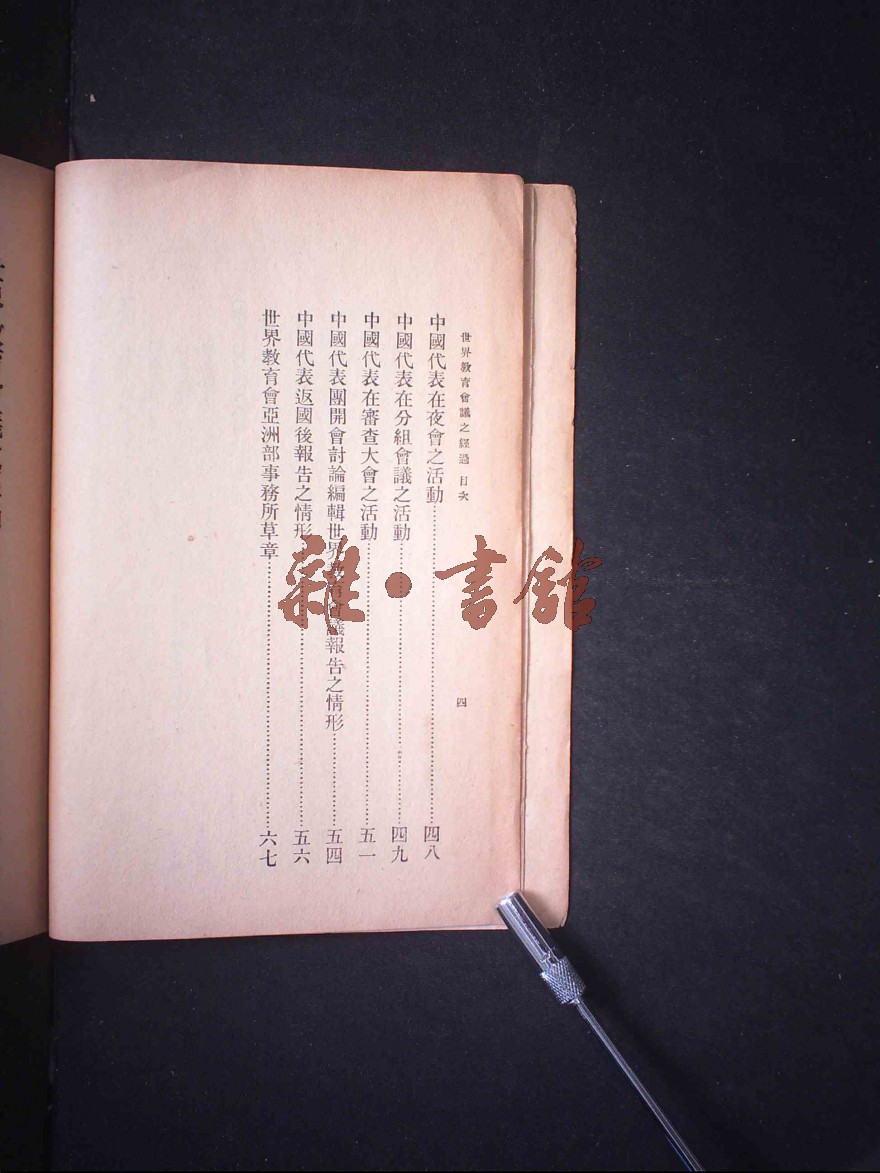 世界教育會議之經過 目次 四
中國代表在夜會之活動……四八
中國代表在分組會議之活動……四九
中國代表在審查大會之活動……五一
中國代表團開會討論編輯世界教育會議報告之情形……五四
中國代表返國後報告之情形……五六
世界教育會亞洲部事務所草章……六七
雜·書館